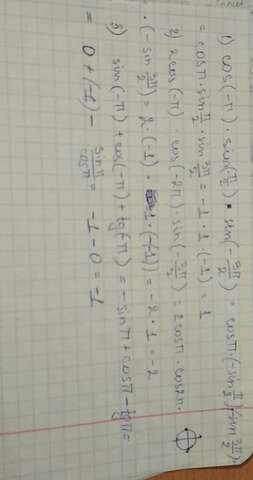 1) cos(-π) · sin(-π/2) · sin(-3π/2) = cosπ·(-sin π/2)(-sin 3π/2) ·
= cosπ · sin π/2 · sin 3π/2 = -1 · 1 · (-1) = 1
2) 2cos(-π) · cos(-2π) · sin(-3π/2) = 2cosπ · cos2π ·
· (-sin 3π/2) = 2 · (-1) · 1 · (-(-1)) = -2 · 1 = -2
3) sin(-π) + cos(-π) + tg(-π) = -sinπ + cosπ - tgπ =
= 0 + (-1) - sinπ/cosπ = -1 - 0 = -1